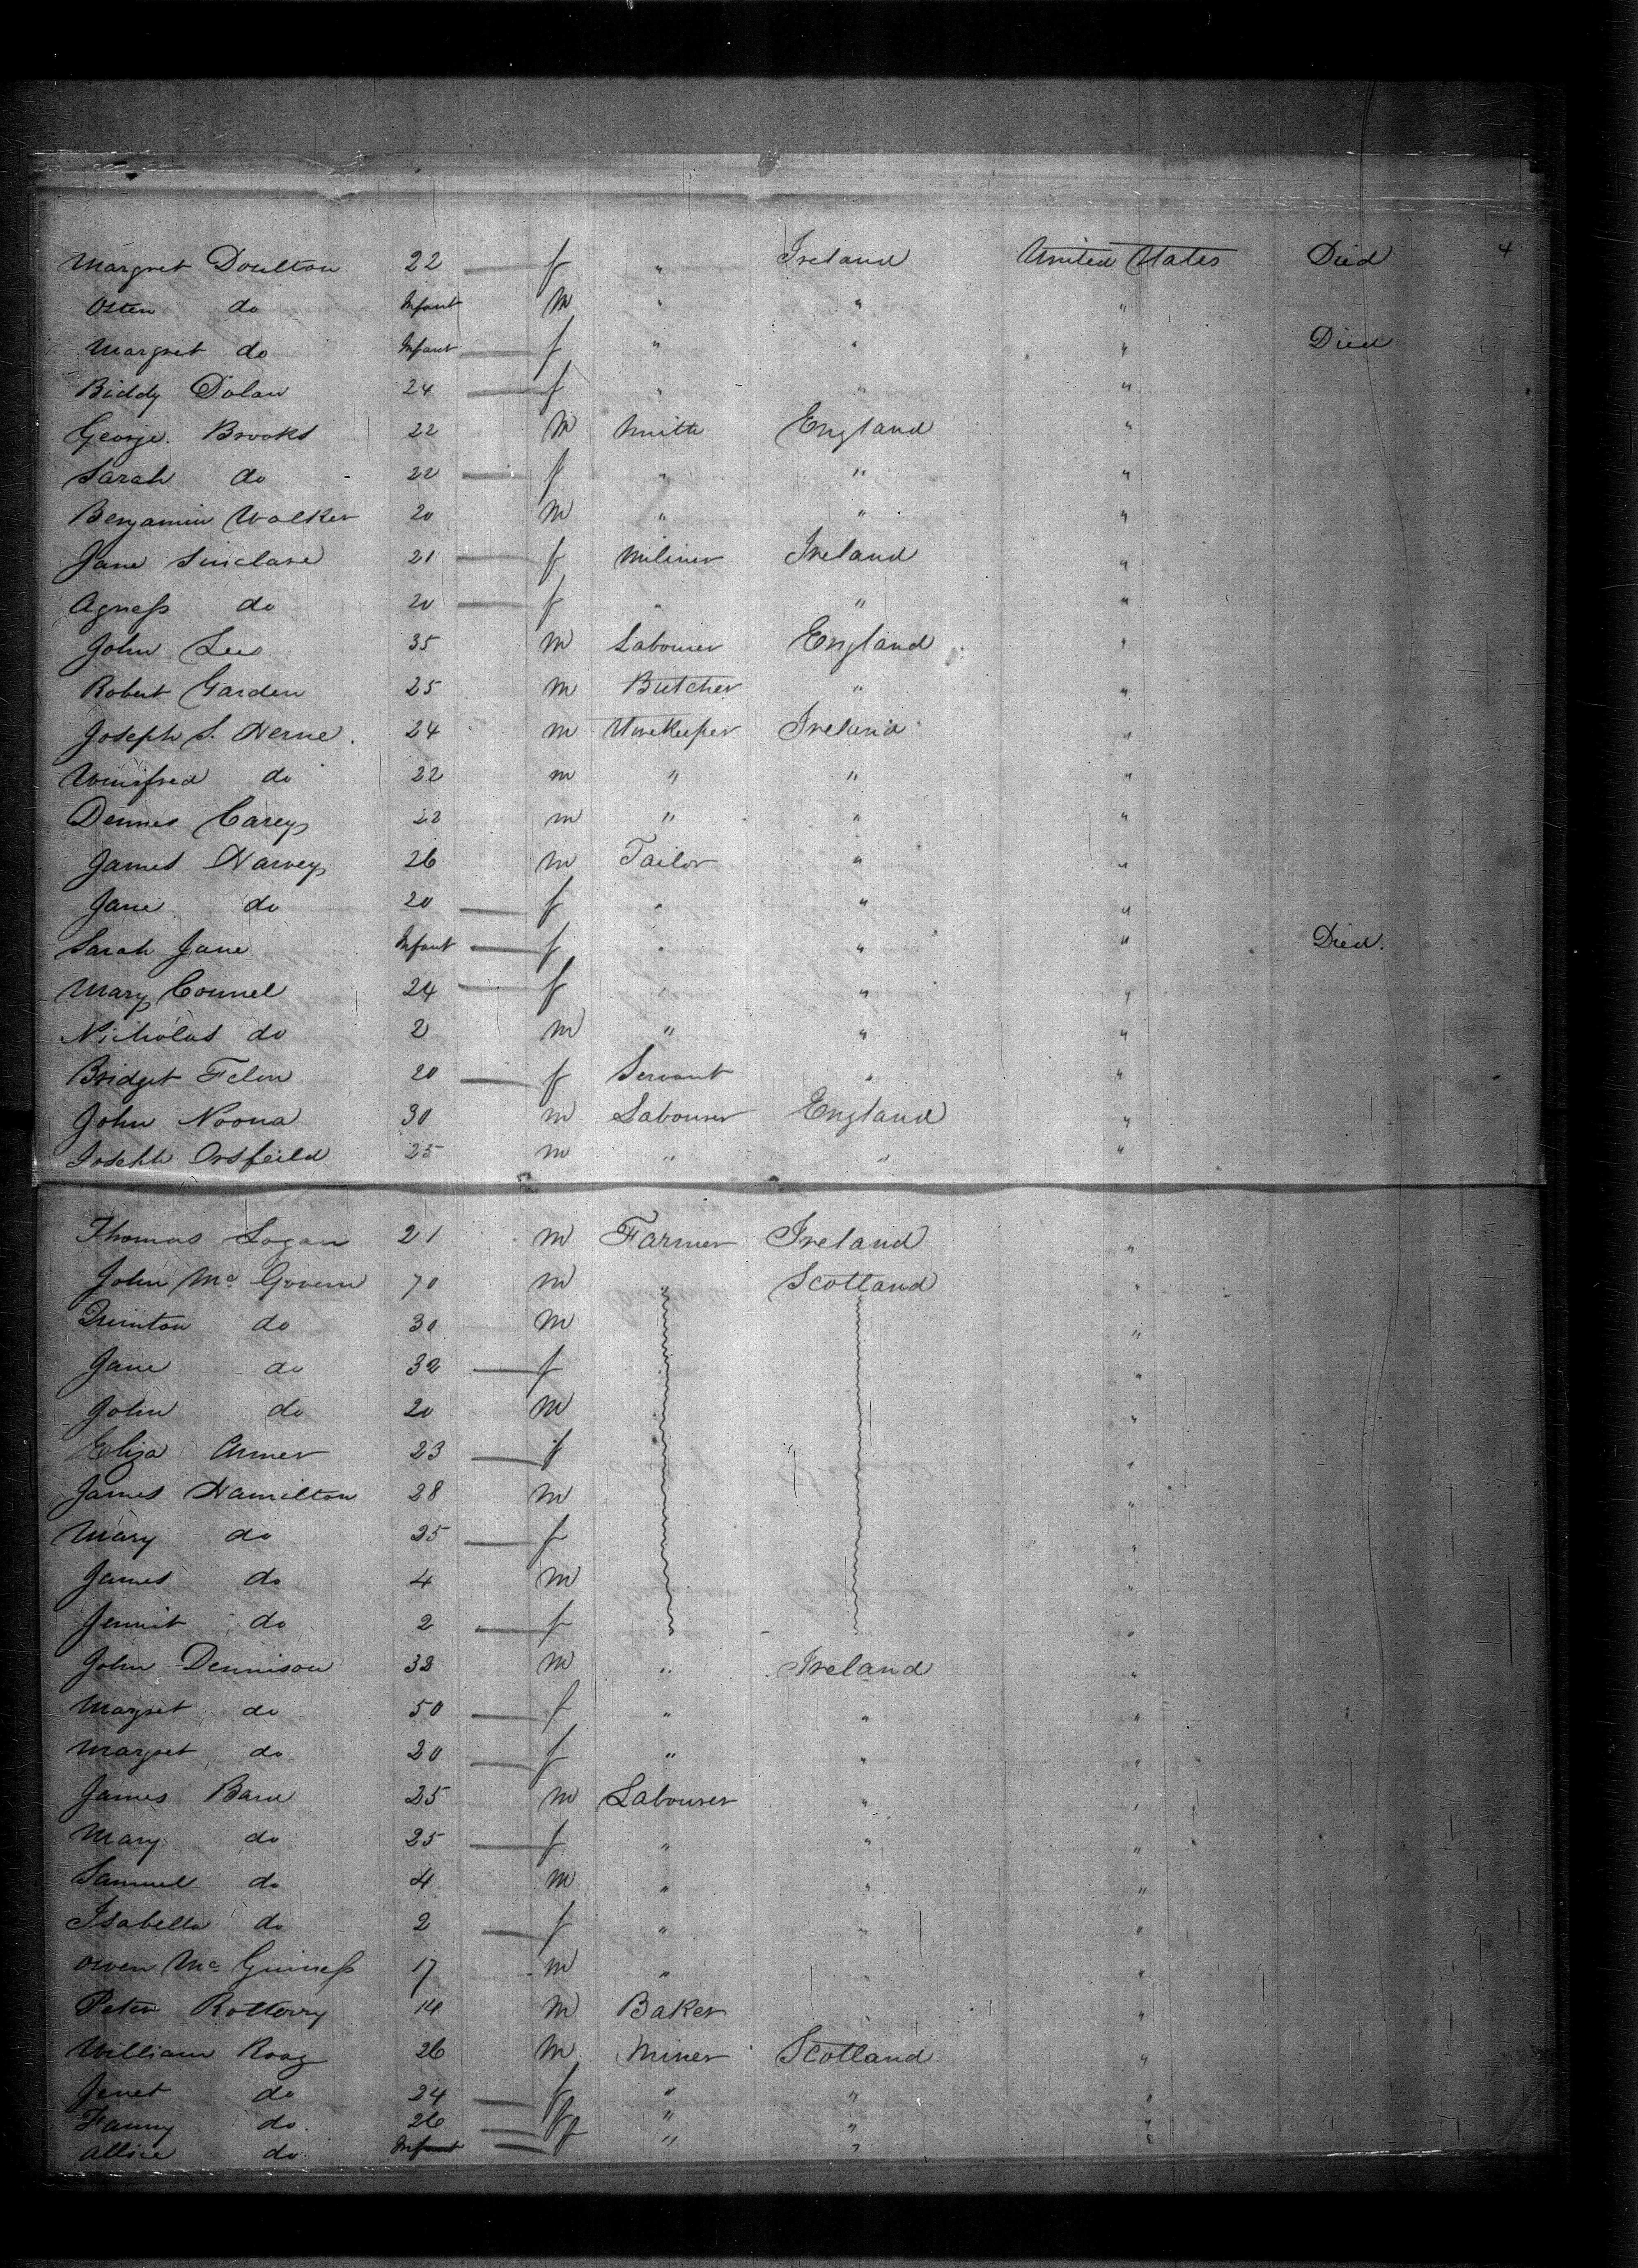 4
Margret Doulton 22 f " Ireland United States Died
Osten do Infant M " " "
Margret do Infant f " " " Died
Biddy Dolan 24 f " " "
George. Brooks 22 M Smith England "
Sarah do 22 f " " "
Benjamin Walker 20 M " " "
Jane Sinclare 21 f Miliner Ireland "
Agness do 20 f " " "
John Lees 35 M Labourer England "
Robert Garden 25 M Butcher " "
Joseph S. Herne 24 M Ireland "
Winifred do 22 m " " "
Dennes Carey 22 m " " "
James Harvey 26 M Tailor " "
Jane do 20 f " " "
Sarah Jane Infant f " " " Died.
Mary Connel 24 f " " "
Nicholas do 2 M " " "
Bridget Felon 20 f Servant " "
John Noona 30 M Labourer England "
Joseph Orsfeild 25 m " " "
Thomas Logan 21 M Farmer Ireland "
John Mc Govern 70 M " Scotland "
Quinton do 30 M "
Jane do 32 f "
John do 20 M "
Eliza 23 f "
James Hamilton 28 M "
Mary do 25 f "
James do 4 M "
Jennit do 2 f "
John Dennison 38 M " Ireland "
Margret do 50 f " " "
Margret do 20 f " " "
James Barn 25 M Labourer " "
Mary do 25 f " " "
Samuel do 4 M " " "
Isabella do 2 f " " "
Owen Mc Guiness 17 M " " "
Peter Rotterry 14 M Baker " "
William 26 M Miner Scotland. "
Jenet do 24 f " " "
Fanny do. 26 f " " "
Allice do. Infant f " " "